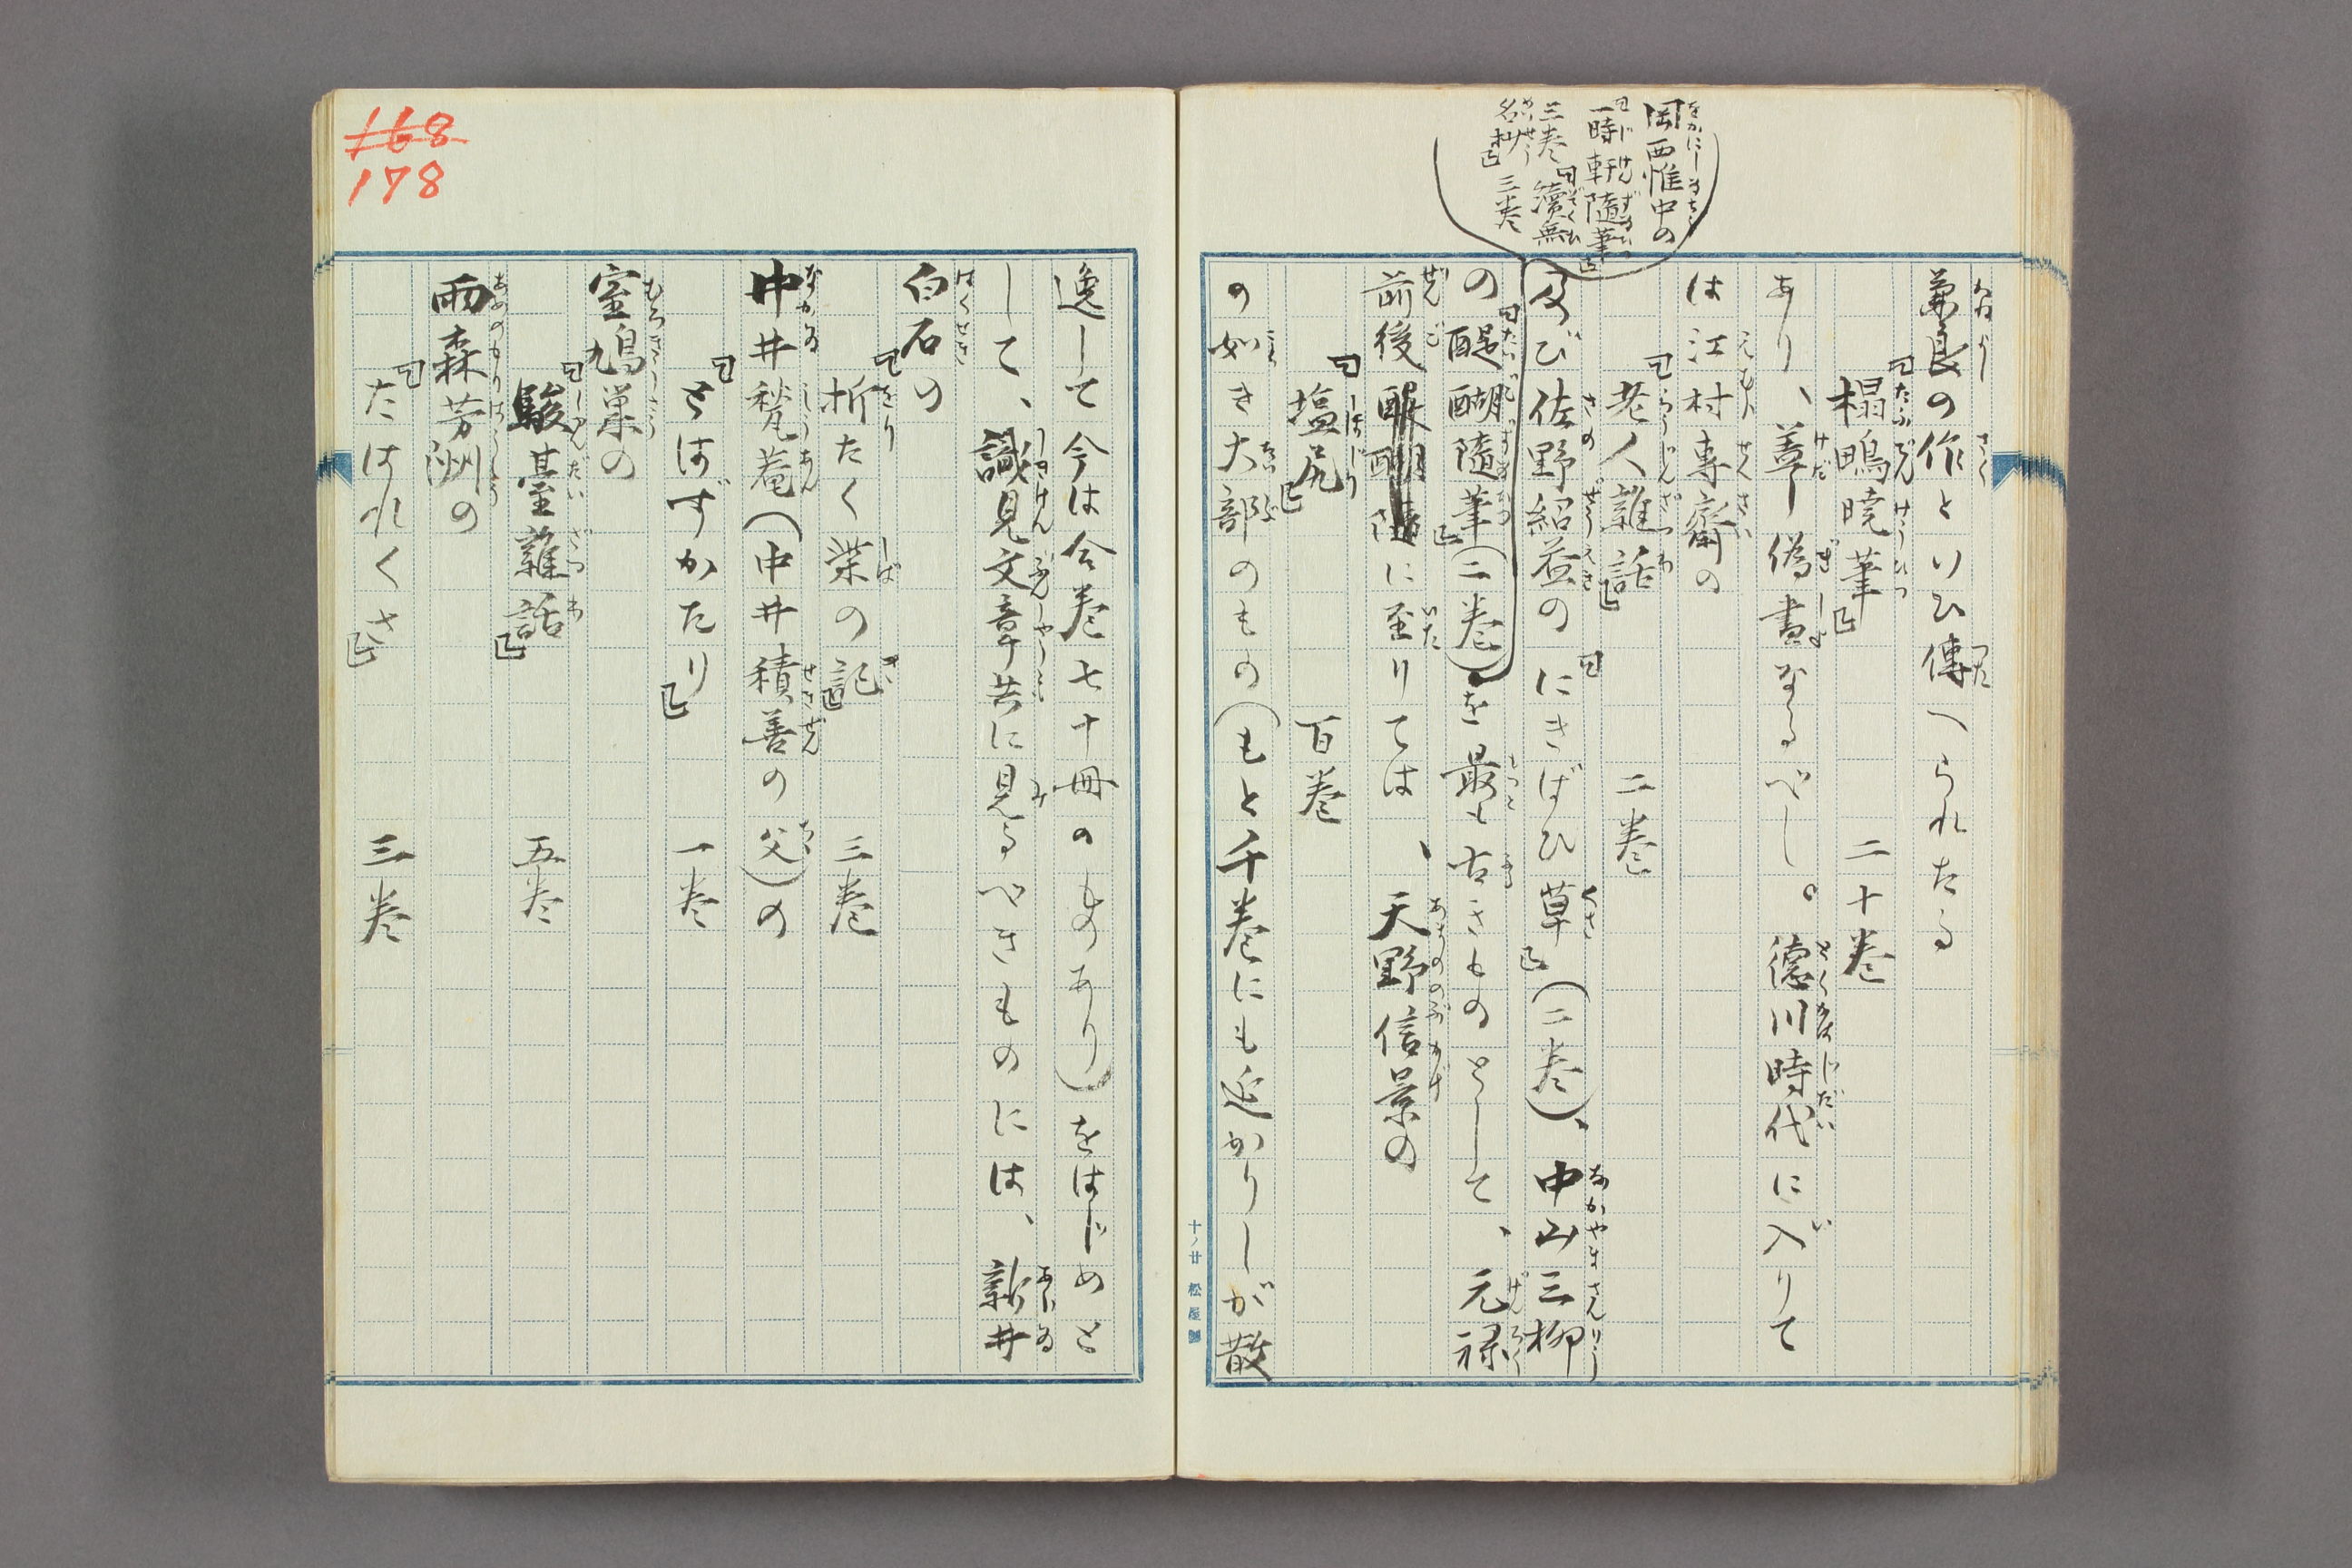 兼良の作といひ傳へられたる
『榻鴫暁筆』 二十巻
あり、蓋し偽書なるべし。徳川時代に入りて
は江村専齋の
『老人雑話』 二巻
及び佐野紹益の『にきばひ草』(二巻)、中山三柳
の『醍醐隨筆』(二巻)を最も古きものとして、元禄
前後に至りては、天野信景の
『塩尻』 百巻
の如き大部のもの(もと千巻にも近かりしが散
岡西惟中の
『一時軒隨筆』
三巻『續無
名抄』三巻
十ノ廿 松屋製
168
178
逸して今は合巻七十冊のものあり)をはじめと
して、識見文章共に見るべきものには、新井
白石の
『折たく柴の記』 三巻
中井甃菴(中井積善の父)の
『とはずかたり』 一巻
室鳩巣の
『駿臺雜話』 五巻
雨森芳洲の
『たはれくさ』 三巻